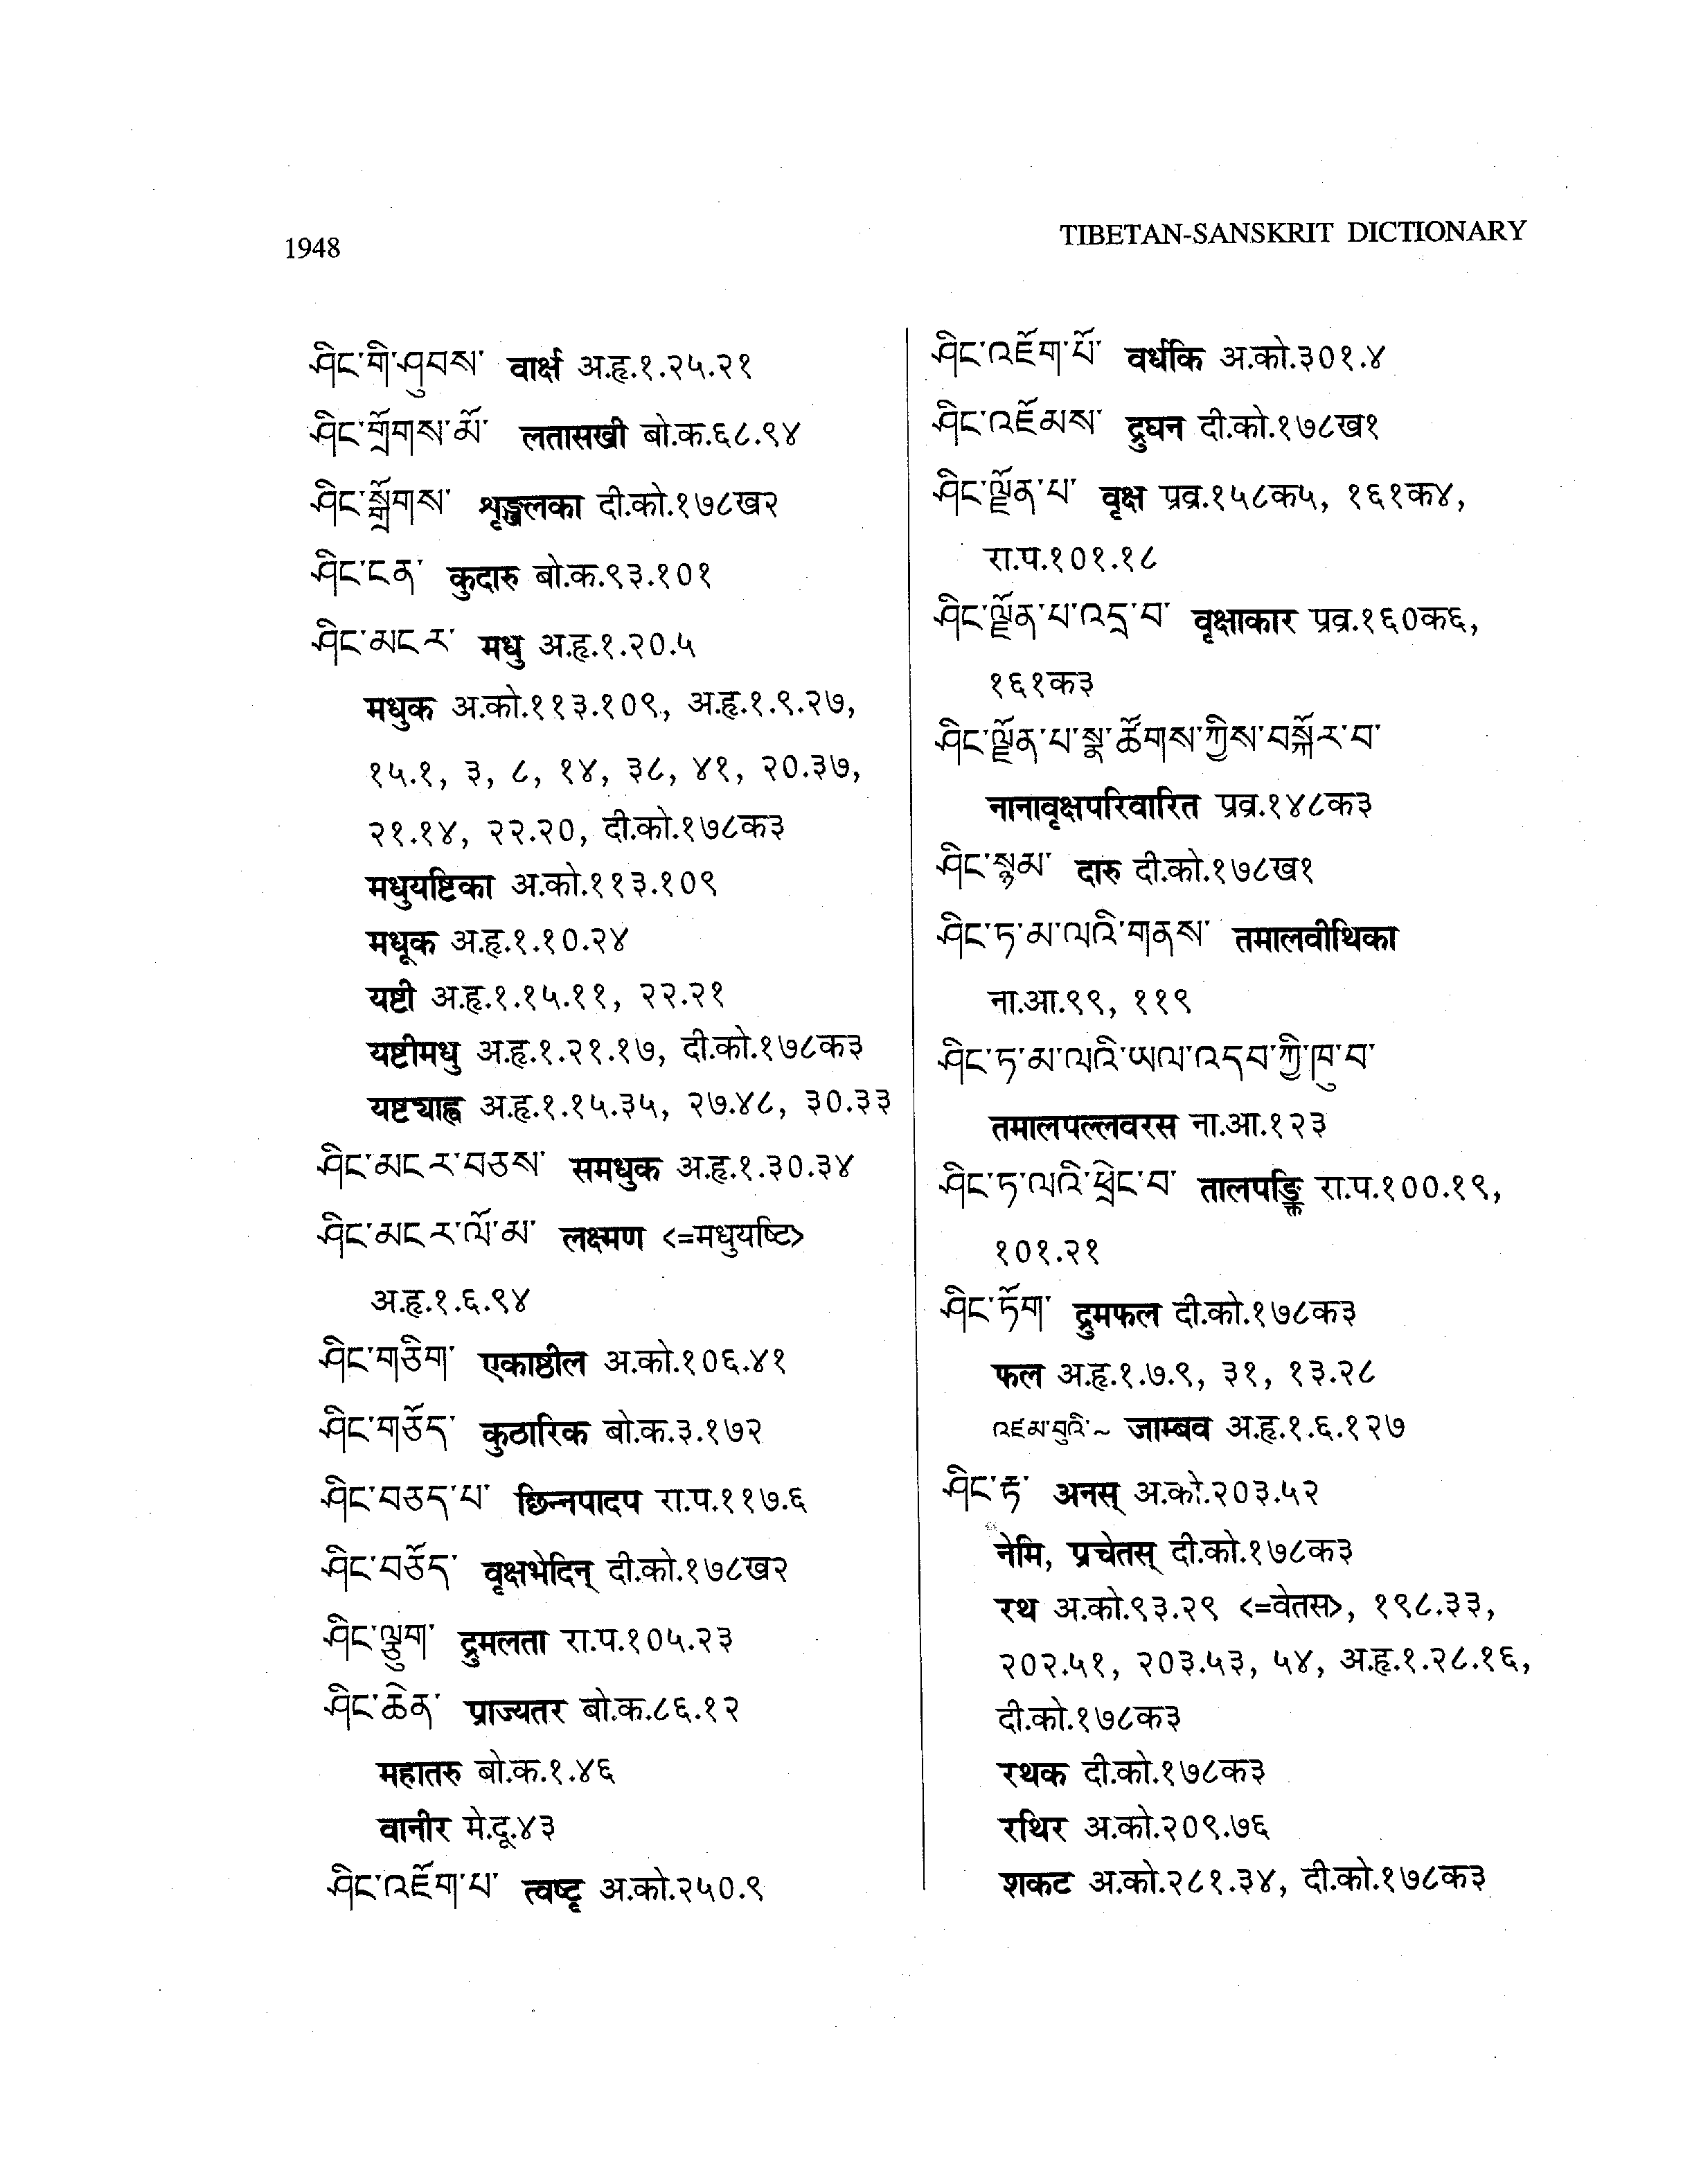 1948
TIBETAN-SANSKRIT DICTIONARY
ཤིང་གི་ཤུབས་ वार्क्ष अ.हृ.१.२५.२१
ཤིང་གྲོགས་མོ་ लतासखी बो.क.६८.९४
ཤིང་སྒྲོགས་ शृङ्खलका दी.को.१७८ख२
ཤིང་ངན་ कुदारु बो.क.९३.१०१
ཤིང་མངར་ मधु अ.हृ.१.२०.५
मधुक अ.को.११३.१०९, अ.हृ.१.९.२७,
१५.१, ३, ८, १४, ३८, ४१, २०.३७,
२१.१४, २२.२०, दी.को.१७८क३
मधुयष्टिका अ.को.११३.१०९
मधूक अ.हृ.१.१०.२४
यष्टी अ.हृ.१.१५.११, २२.२१
यष्टीमधु अ.हृ.१.२१.१७, दी.को.१७८क३
यष्ट्याह्व अ.हृ.१.१५.३५, २७.४८, ३०.३३
ཤིང་མངར་བཅས་ समधुक अ.हृ.१.३०.३४
ཤིང་མངར་ལོ་མ་ लक्ष्मण <=मधुयष्टि>
अ.हृ.१.६.९४
ཤིང་གཅིག་ एकाष्ठील अ.को.१०६.४१
ཤིང་གཅོད་ कुठारिक बो.क.३.१७२
ཤིང་བཅད་པ་ छिन्नपादप रा.प.११७.६
ཤིང་བཅོད་ वृक्षभेदिन् दी.को.१७८ख२
ཤིང་ལྕུག་ द्रुमलता रा.प.१०५.२३
ཤིང་ཆེན་ प्राज्यतर बो.क.८६.१२
महातरु बो.क.१.४६
वानीर मे.दू.४३
ཤིང་འཇོག་པ་ त्वष्टृ अ.को.२५०.९
ཤིང་འཇོག་པོ་ वर्धकि अ.को.३०१.४
ཤིང་འཇོམས་ द्रुघन दी.को.१७८ख१
ཤིང་ལྗོན་པ་ वृक्ष प्रव्र.१५८क५, १६१क४,
रा.प.१०१.१८
ཤིང་ལྗོན་པ་འདྲ་བ་ वृक्षाकार प्रव्र.१६०क६,
१६१क३
ཤིང་ལྗོན་པ་སྣ་ཚོགས་ཀྱིས་བསྐོར་བ་
नानावृक्षपरिवारित प्रव्र.१४८क३
ཤིང་སྙམ་ दारु दी.को.१७८ख१
ཤིང་ཏ་མ་ལའི་གནས་ तमालवीथिका
ना.आ.९९, ११९
ཤིང་ཏ་མ་ལའི་ཡལ་འདབ་ཀྱི་ཁུ་བ་
तमालपल्लवरस ना.आ.१२३
ཤིང་ཏ་ལའི་ཕྲེང་བ་ तालपङ्क्ति रा.प.१००.१९,
१०१.२१
ཤིང་ཏོག་ द्रुमफल दी.को.१७८क३
फल अ.हृ.१.७.९, ३१, १३.२८
འཛམ་བུའི་~ जाम्बव अ.हृ.१.६.१२७
ཤིང་རྟ་ अनस् अ.को.२०३.५२
नेमि, प्रचेतस् दी.को.१७८क३
रथ अ.को.९३.२९ <=वेतस>, १९८.३३,
२०२.५१, २०३.५३, ५४, अ.हृ.१.२८.१६,
दी.को.१७८क३
रथक दी.को.१७८क३
रथिर अ.को.२०९.७६
शकट अ.को.२८१.३४, दी.को.१७८क३